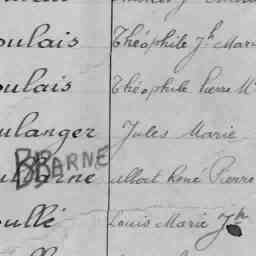 oulais Théophile Jh Mari
oulais Théophile Pierre M
ulanger Jules Marie
BARNE
arne Albert René Pierre
oullé Louis Marie Jh